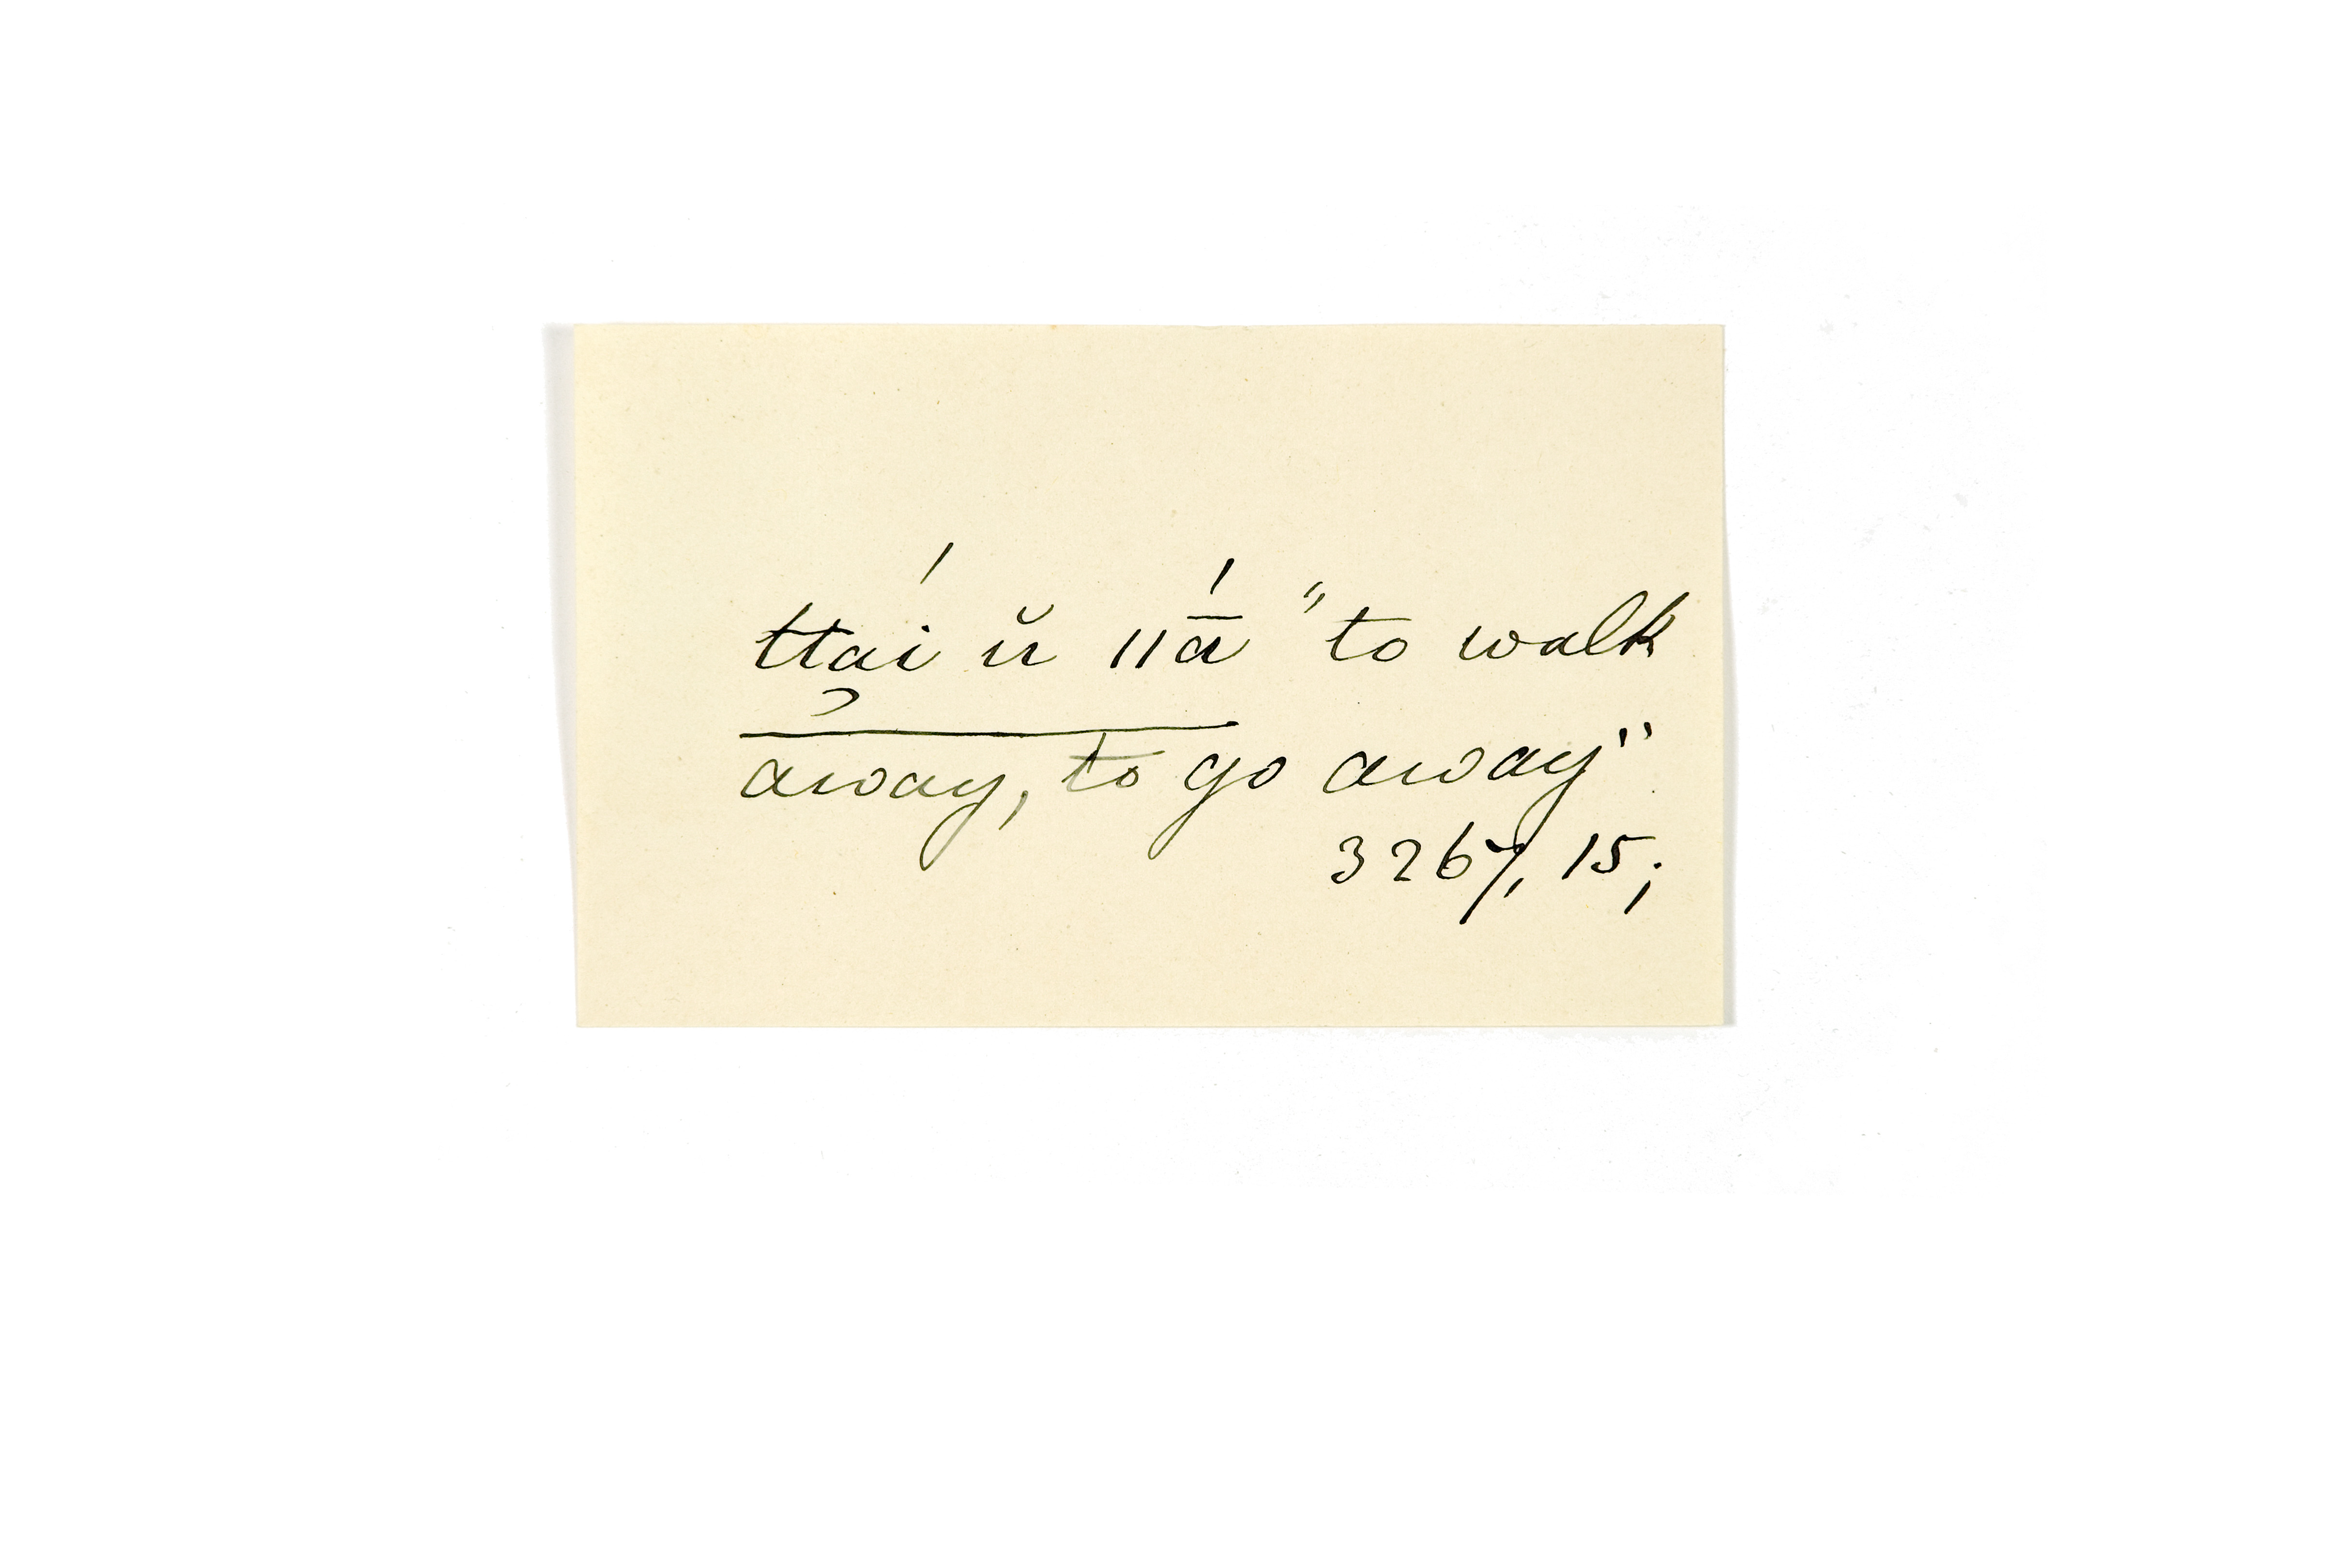 ttaí ŭ ǁā́ "to walk
away, to go away"
3267, 15;